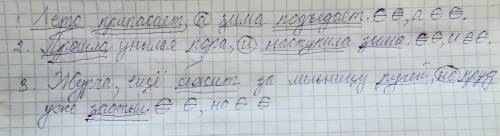 1. Лето припасает, а зима подъедает. ЄЄ, а ЄЄ.
2. Прошла унылая пора, и наступила зима. ЄЄ, и ЄЄ.
3. Журча, ещё бежит за мельницу ручей, но пруд
уже застыл. Є Є, но Є Є